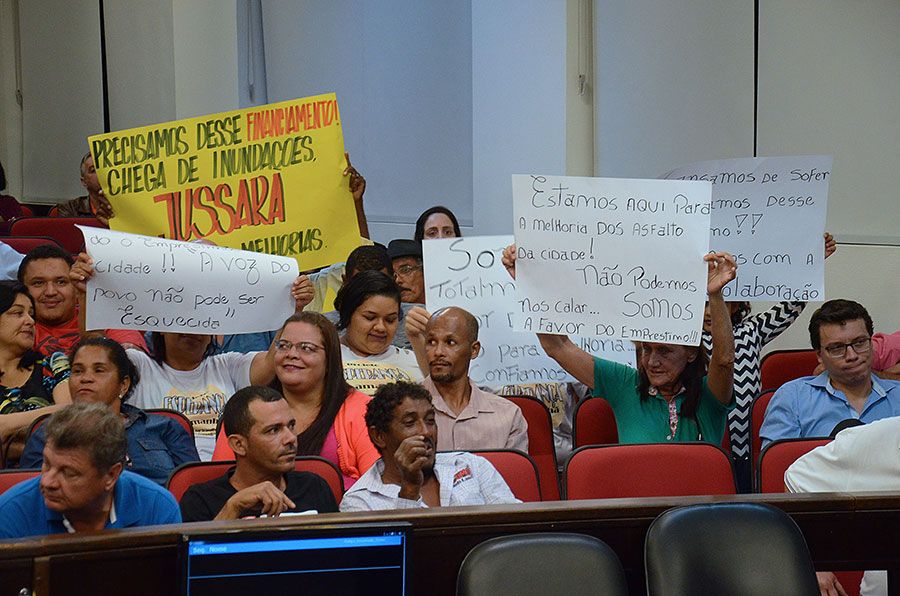 PRECISAMOS DESSE FINANCIAMENTO!
CHEGA DE INUNDAÇÕES,
JUSSARA
MELHORIAS.
DO O EMPRES
CIDADE !! A VOZ DO
POVO NÃO PODE SER
ESQUECIDA !!
SO
TOTALM
PARA
CONFIAMOS
ESTAMOS AQUI PARA
A MELHORIA DOS ASFALTO
DA CIDADE!
NÃO PODEMOS
NOS CALAR... SOMOS
A FAVOR DO EMPRESTIMO!!!
DE SOFER
DESSE
!!
COM A
COLABORAÇÃO
ESPERANÇA
Seq. Nome